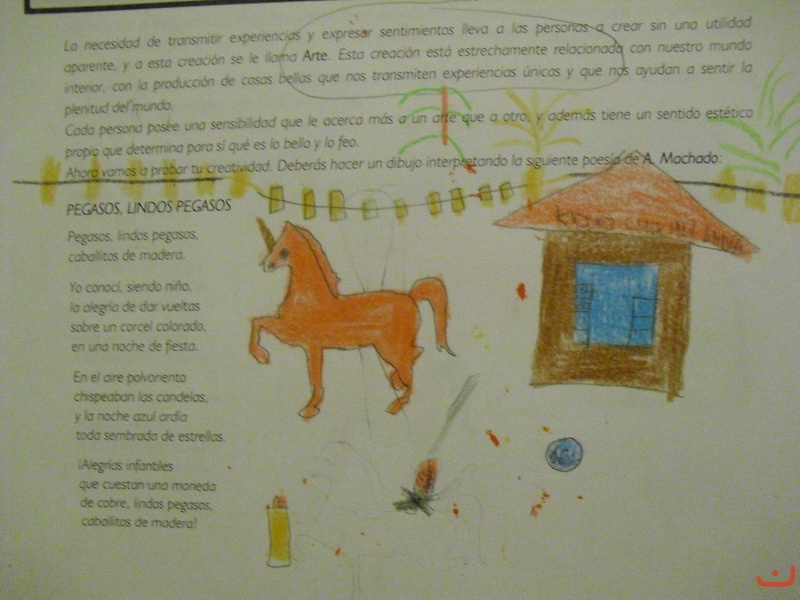 La necesidad de transmitir experiencias y expresar sentimientos lleva a las personas a crear sin una utilidad
aparente, y a esta creación se le llama Arte. Esta creación está estrechamente relacionada con nuestro mundo
interior, con la producción de cosas bellas que nos transmiten experiencias únicas y que nos ayudan a sentir la
plenitud del mundo.
Cada persona posee una sensibilidad que le acerca más a un arte que a otro, y además tiene un sentido estético
propio que determina para sí qué es lo bello y lo feo.
Ahora vamos a probar tu creatividad. Deberás hacer un dibujo interpretando la siguiente poesía de A. Machado:
PEGASOS, LINDOS PEGASOS
Pegasos, lindos pegasos,
caballitos de madera.
Yo conocí, siendo niño,
la alegría de dar vueltas
sobre un corcel colorado,
en una noche de fiesta.
En el aire polvoriento
chispeaban las candelas,
y la noche azul ardía
toda sembrada de estrellas.
¡Alegrías infantiles
que cuestan una moneda
de cobre, lindos pegasos,
caballitos de madera!